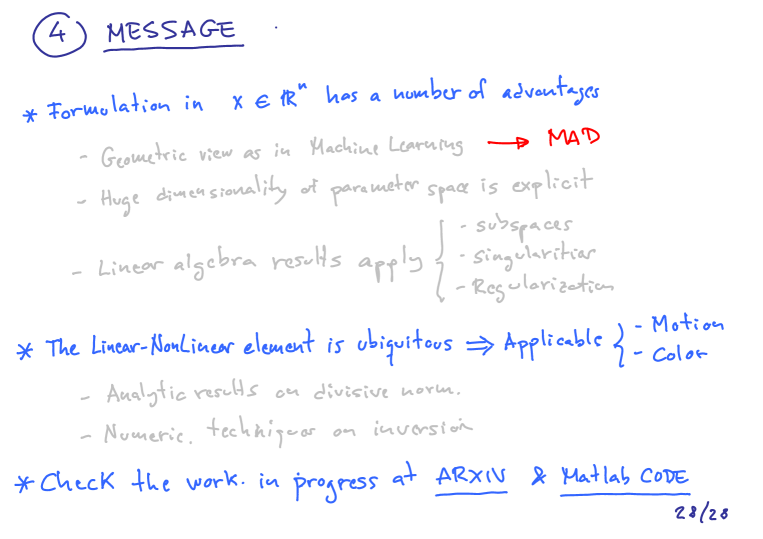 4 MESSAGE
* Formulation in x ∈ ℝⁿ has a number of advantages
- Geometric view as in Machine Learning → MAD
- Huge dimensionality of parameter space is explicit
- Linear algebra results apply { - subspaces
- Singularitias
- Regularization
* The Linear-NonLinear element is ubiquitous ⇒ Applicable { - Motion
- Color
- Analytic results on divisive norm.
- Numeric. techniques on inversion
* Check the work. in progress at ARXIV & Matlab CODE
28/28